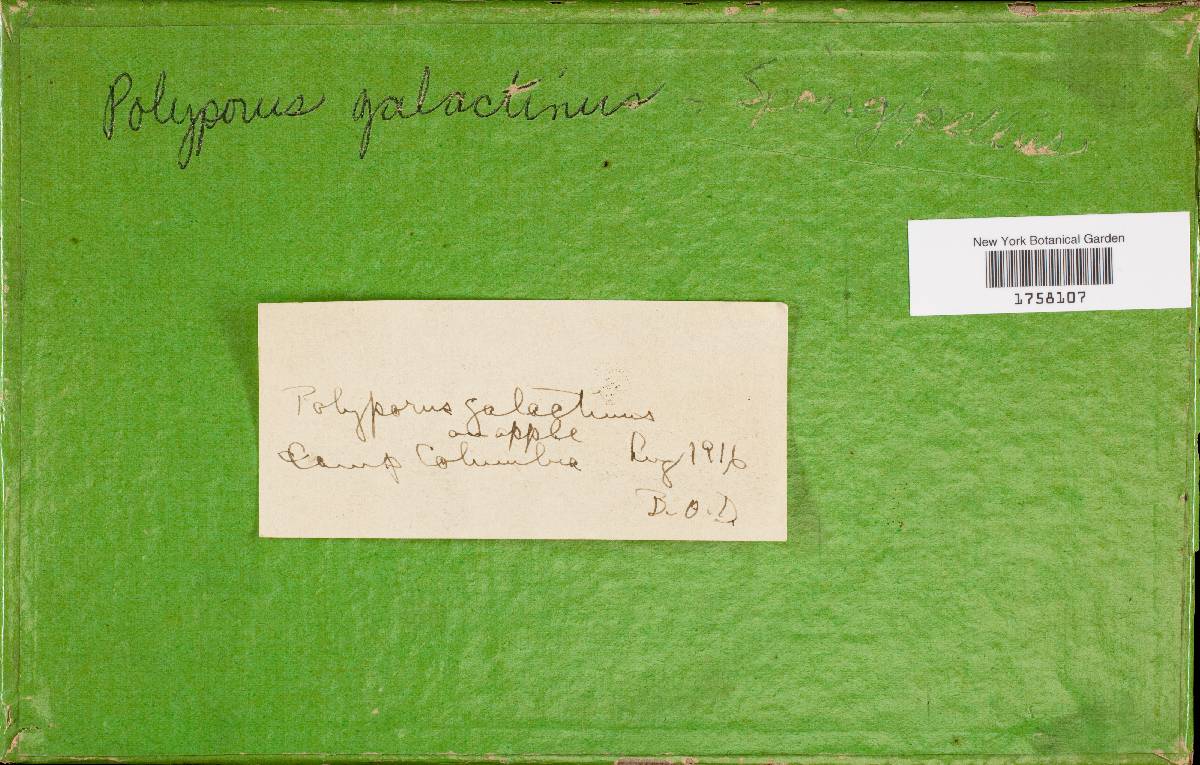 Polyporus galactinus - Spongipellis
New York Botanical Garden
1758107
Polyporus galactinus
on apple
Camp Columbia Aug 1916
B.O.D